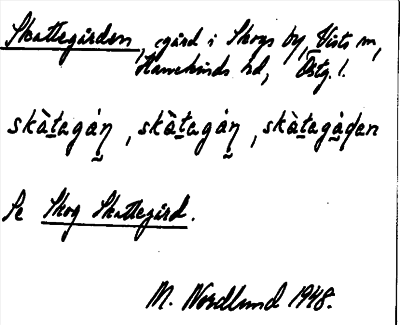 Skattegården, gård i Skogs by, Vists sn,
Hanekinds hd, Östg. l.
skàtagáṇ, skàtagáṇ, skàtagáḍan
Se Skog Skattegård.
M. Nordlund 1948.